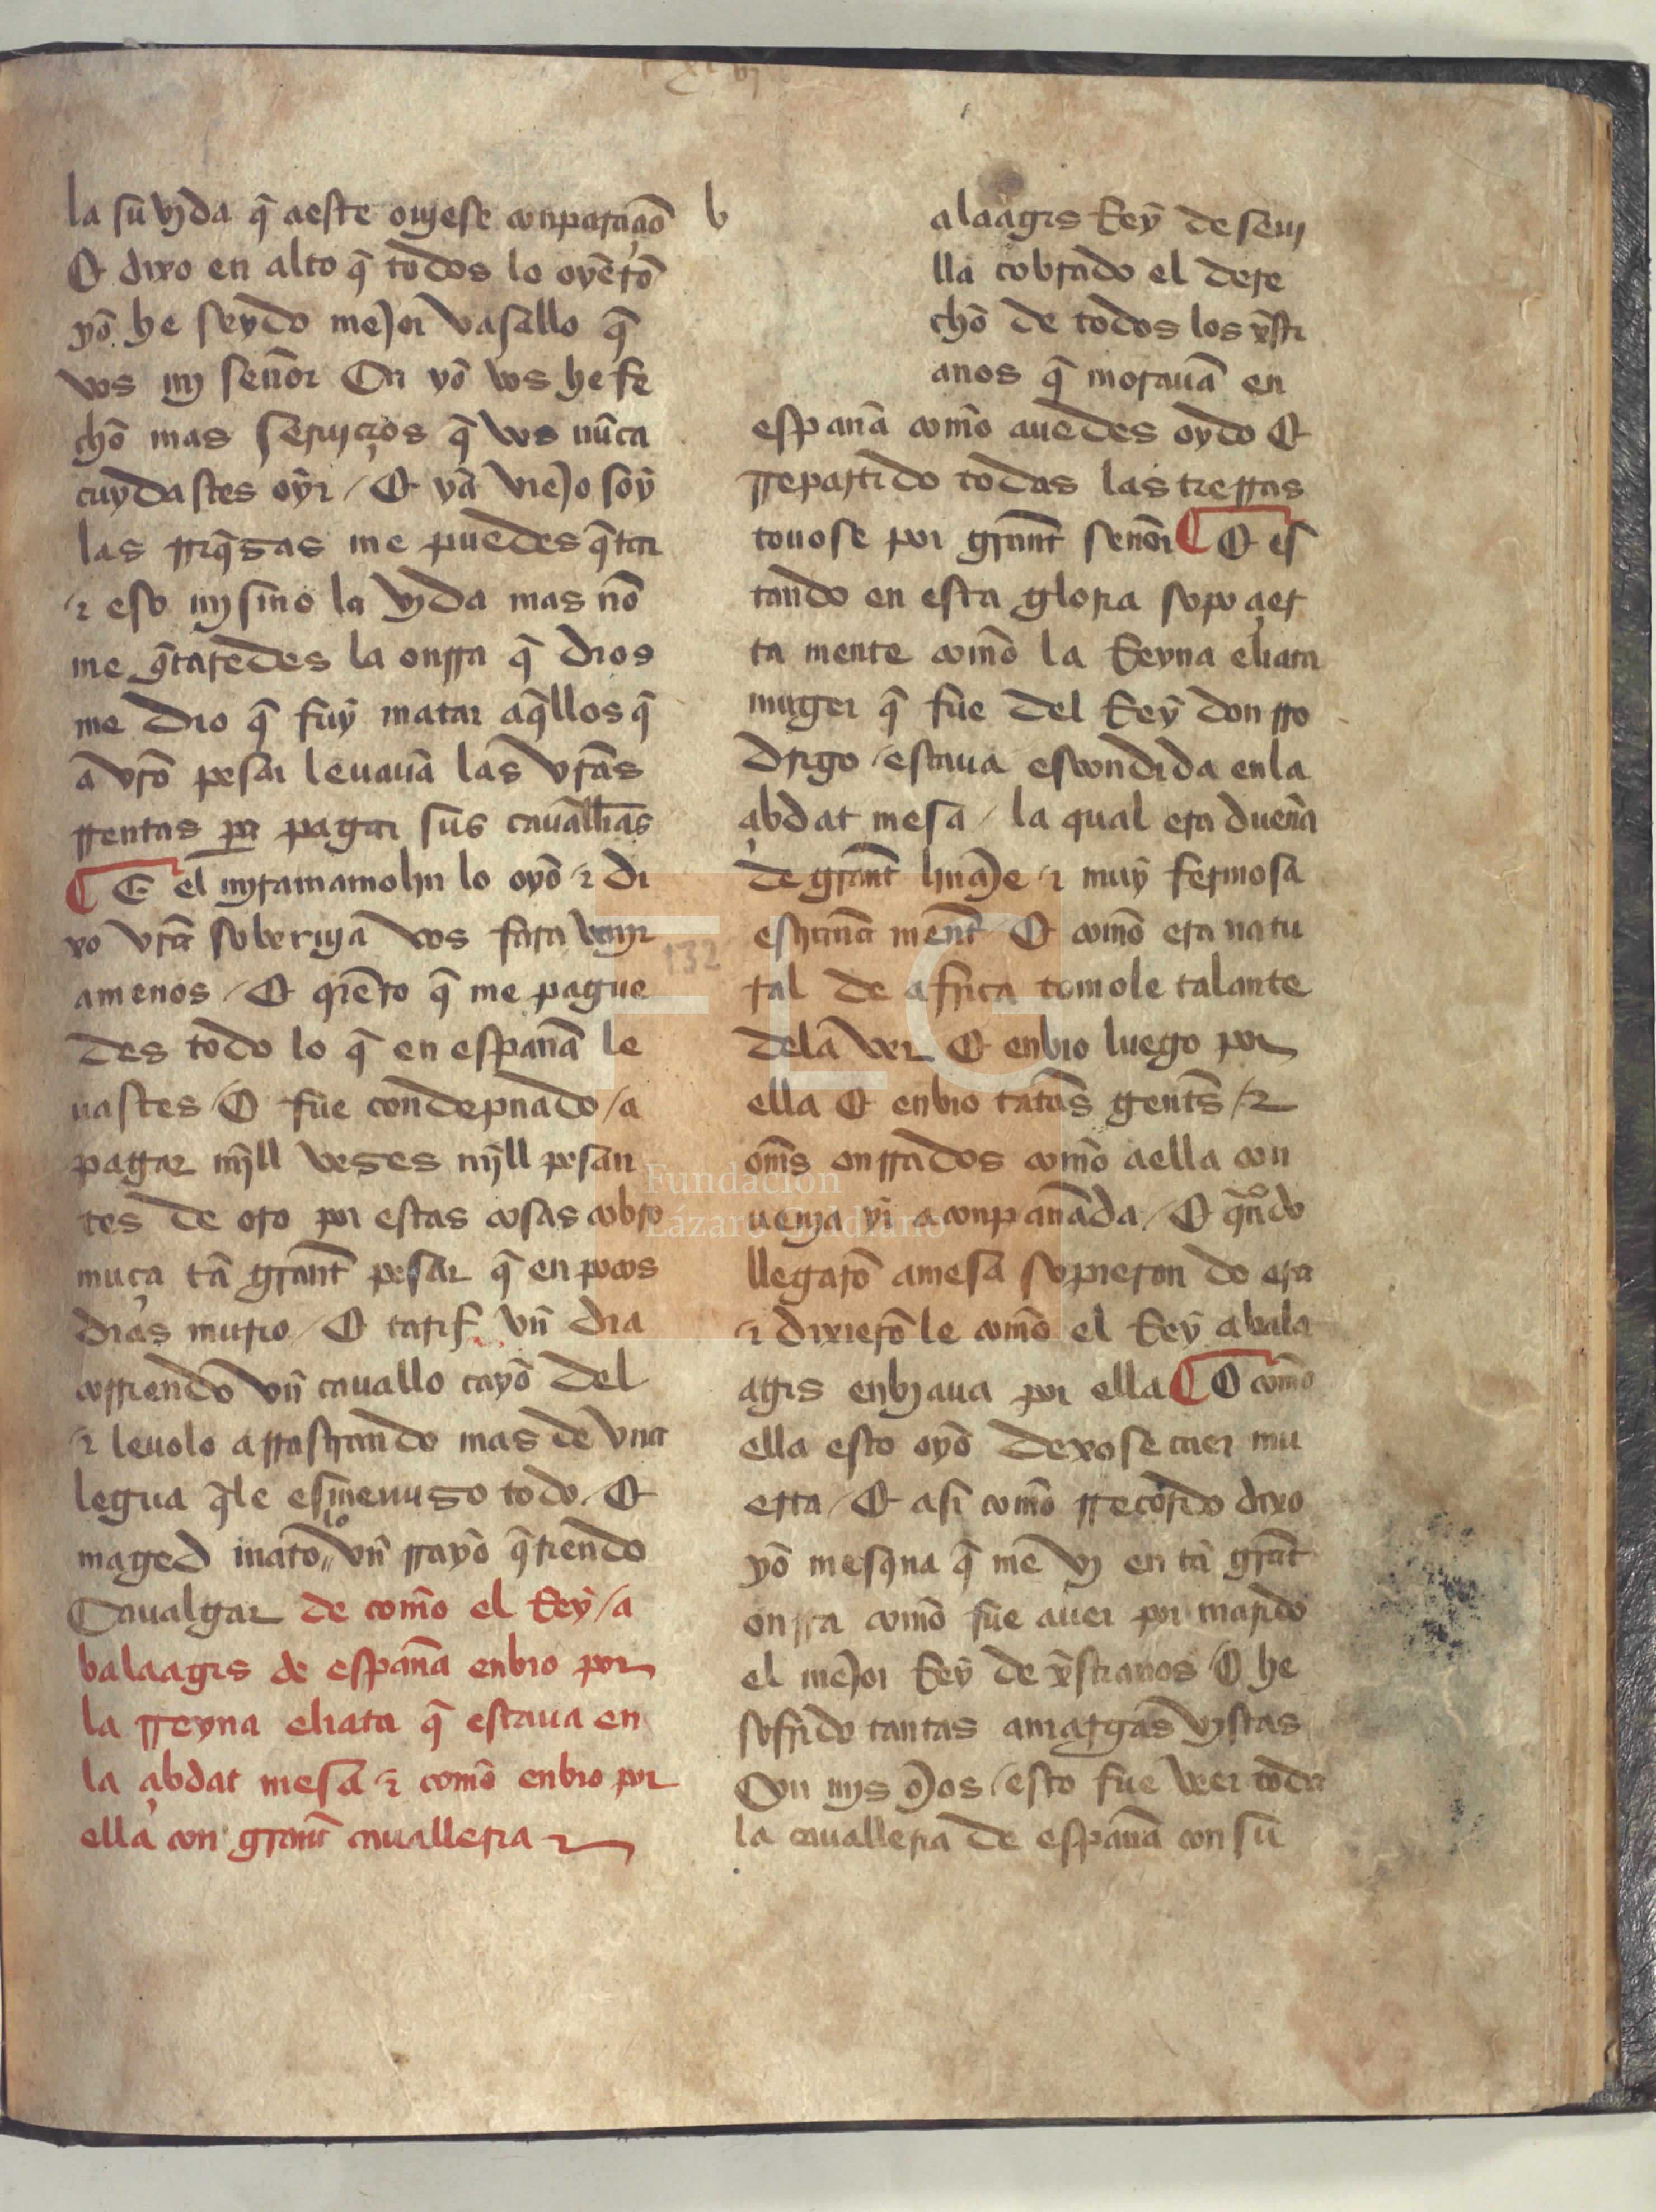 la su vyda q̃ a este ouyese conparaçõ
Et dixo en alto q̃ todos lo oyerõ
yo he seydo mejor vasallo q̃
vos my señor Ca yo vos he fe
cho mas seruiçios q̃ vos nũca
cuydastes oyr / Et ya viejo soy
las rriq̃sas me puedes q̃tar
⁊ eso mysmo la vyda mas nõ
me q̃taredes la onrra q̃ dios
me dio q̃ fuy matar aq̃llos q̃
a vr̃o pesar leuauã las vr̃as
rrentas pa pagar sus cauallr̃ias
¶ E el miramamolin lo oyo ⁊ di
xo vr̃a soberuya vos fara venyr
a menos / Et quiero q̃ me pague
des todo lo q̃ en españa le
uastes / E fue condepnado / a
pagar mȳll veses mȳll pesan
tes de oro por estas cosas cobro
muça tã grant pesar q̃ en pocos
dias murio / E tarif vñ dia
corriendo vñ cauallo cayo del
⁊ leuolo arrastrando mas de vna
legua q̃le esmenuso todo. Et
maged matolo vñ rrayo q̃riendo
Caualgar de como el Rey / a
balaagis de españa enbio por
la rreyna eliata q̃ estaua en
la çibdat mesa ⁊ como enbio por
ella con grant caualleria
b
alaagis Rey de seui
lla cobrado el dere
cho de todos los xp̃sti
anos q̃ morauã en
españa como auedes oydo Et
rrepartido todas las tierras
touose por grant señor ¶ E es
tando en esta gloria sopo çier
ta mente como la Reyna eliata
muger q̃ fue del Rey don rro
drigo / estaua escondida en la
çibdat mesa / la qual era dueña
de grant linaje ⁊ muy fermosa
estraña ment Et como era natu
ral de africa tomole talante
de la ver Et enbio luego por
ella Et enbio tatas gentes / ⁊
om̃s onrrados como a ella con
uenja yr aconpañada / E quãdo
llegarõ a mesa sopieron do era
⁊ dixierõ le como el Rey abala
agis enbyaua por ella ¶ E como
ella esto oyo dexose caer mu
erta / Et asi como rrecordo dixo
yo mesq̃na q̃ me vy en tã grãt
onrra como fue auer por marido
el mejor Rey de xp̃stianos E he
sofrido tantas amargas vystas
Con mys ojos / esto fue veer toda
la caualleria de españa con su
132
FLG
Fundación
Lázaro Galdiano